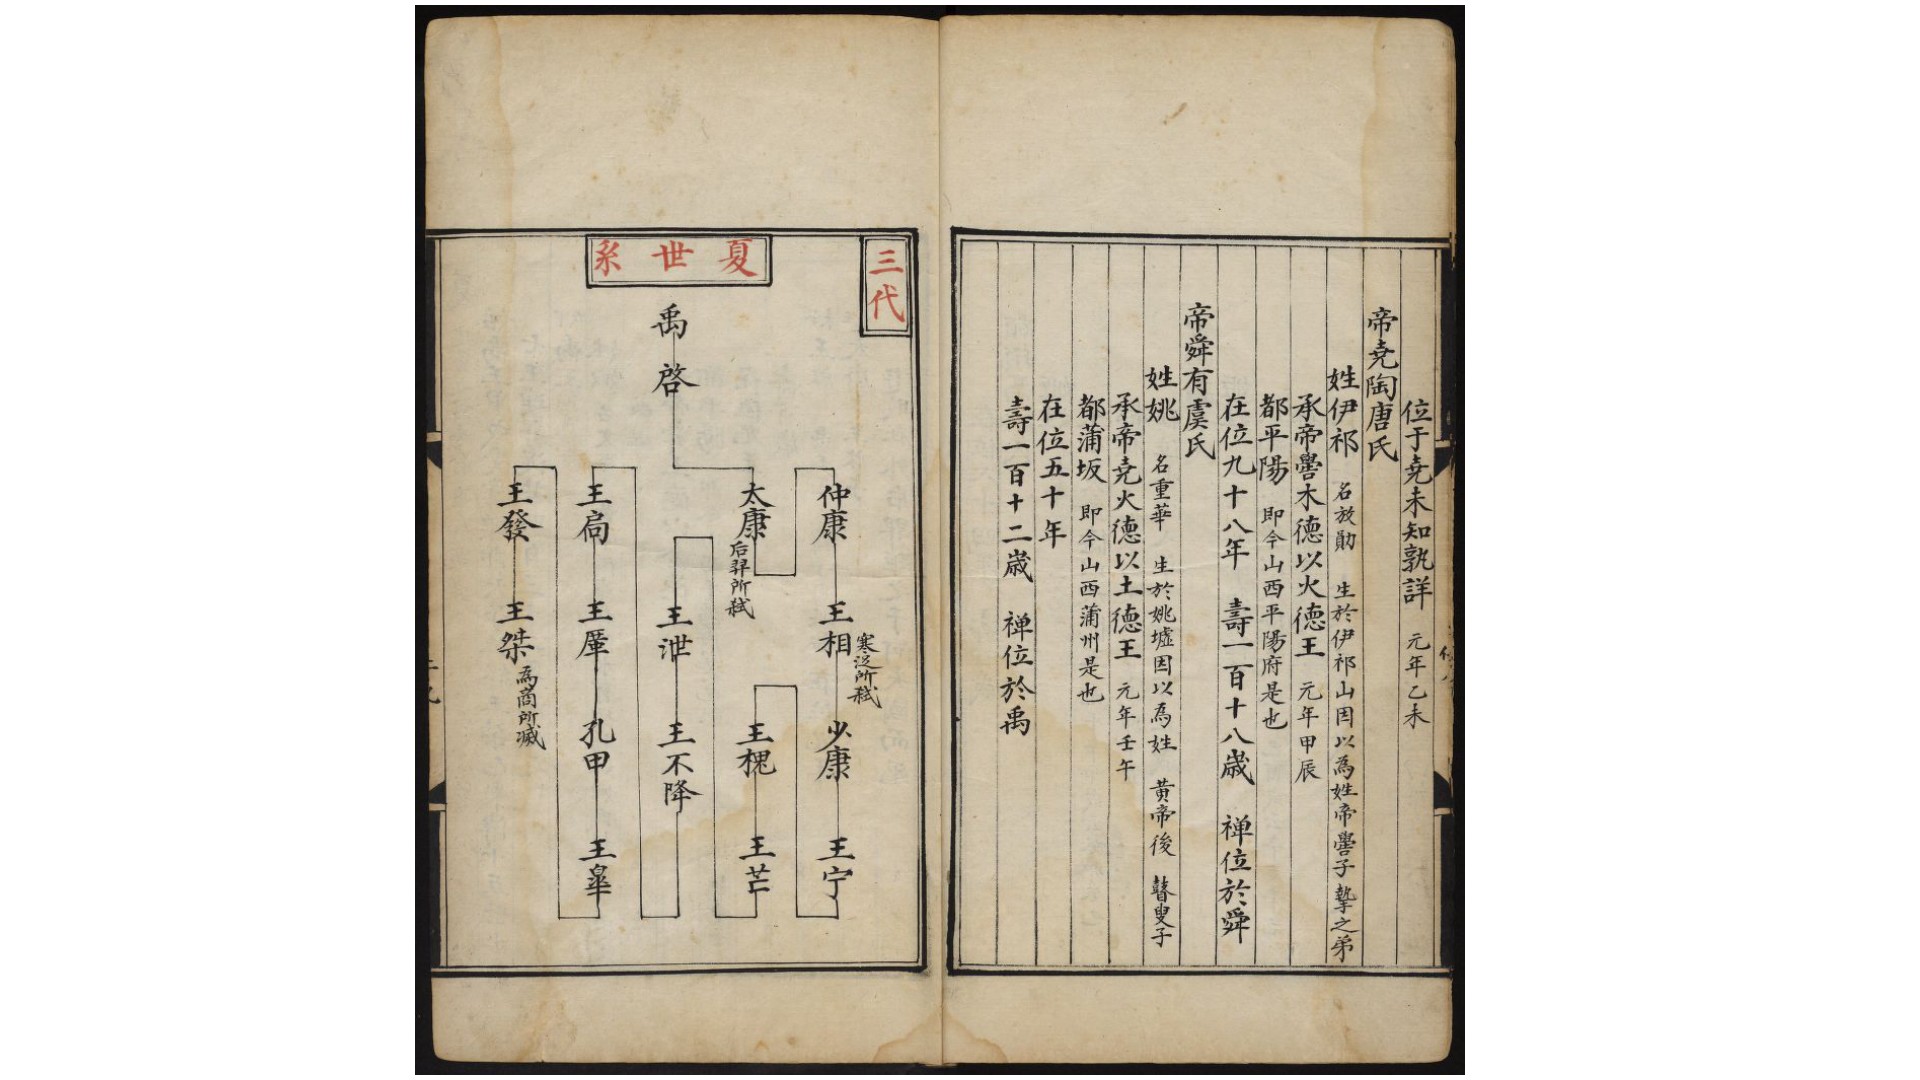 位于尭未知孰詳 元年乙未
帝尭陶唐氏
姓伊祁 名放勛 生於伊祁山因以為姓帝嚳子摯之弟
承帝嚳木德以火德王 元年甲辰
都平陽 即今山西平陽府是也
在位九十八年 壽一百十八歲 禅位於舜
帝舜有虞氏
姓姚 名重華 生於姚墟因以為姓 黃帝後 瞽叟子
承帝尭火德以土德王 元年壬午
都蒲坂 即今山西蒲州是也
在位五十年
壽一百十二歲 禅位於禹
三代
夏世系
禹
啓
太康 后羿所弑
仲康
王相 寒浞所弑
少康
王宁
王槐
王芒
王泄
王不降
王扃
王厪
孔甲
王皐
王發
王桀 為啇所滅